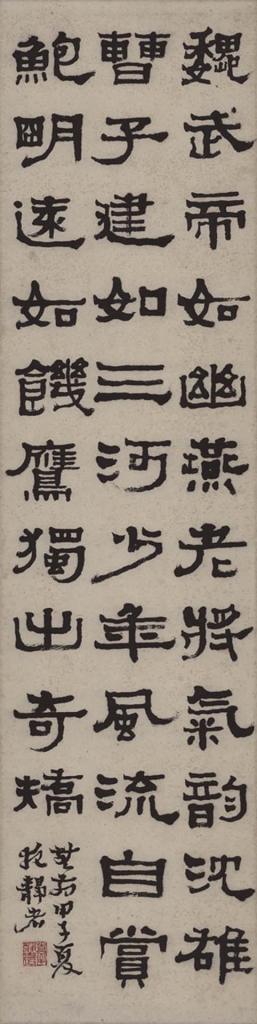 魏武帝如幽燕老將氣韵沈雄
曹子建如三河少年風流自賞
鮑明遠如饑鷹獨出奇矯
無前甲子夏